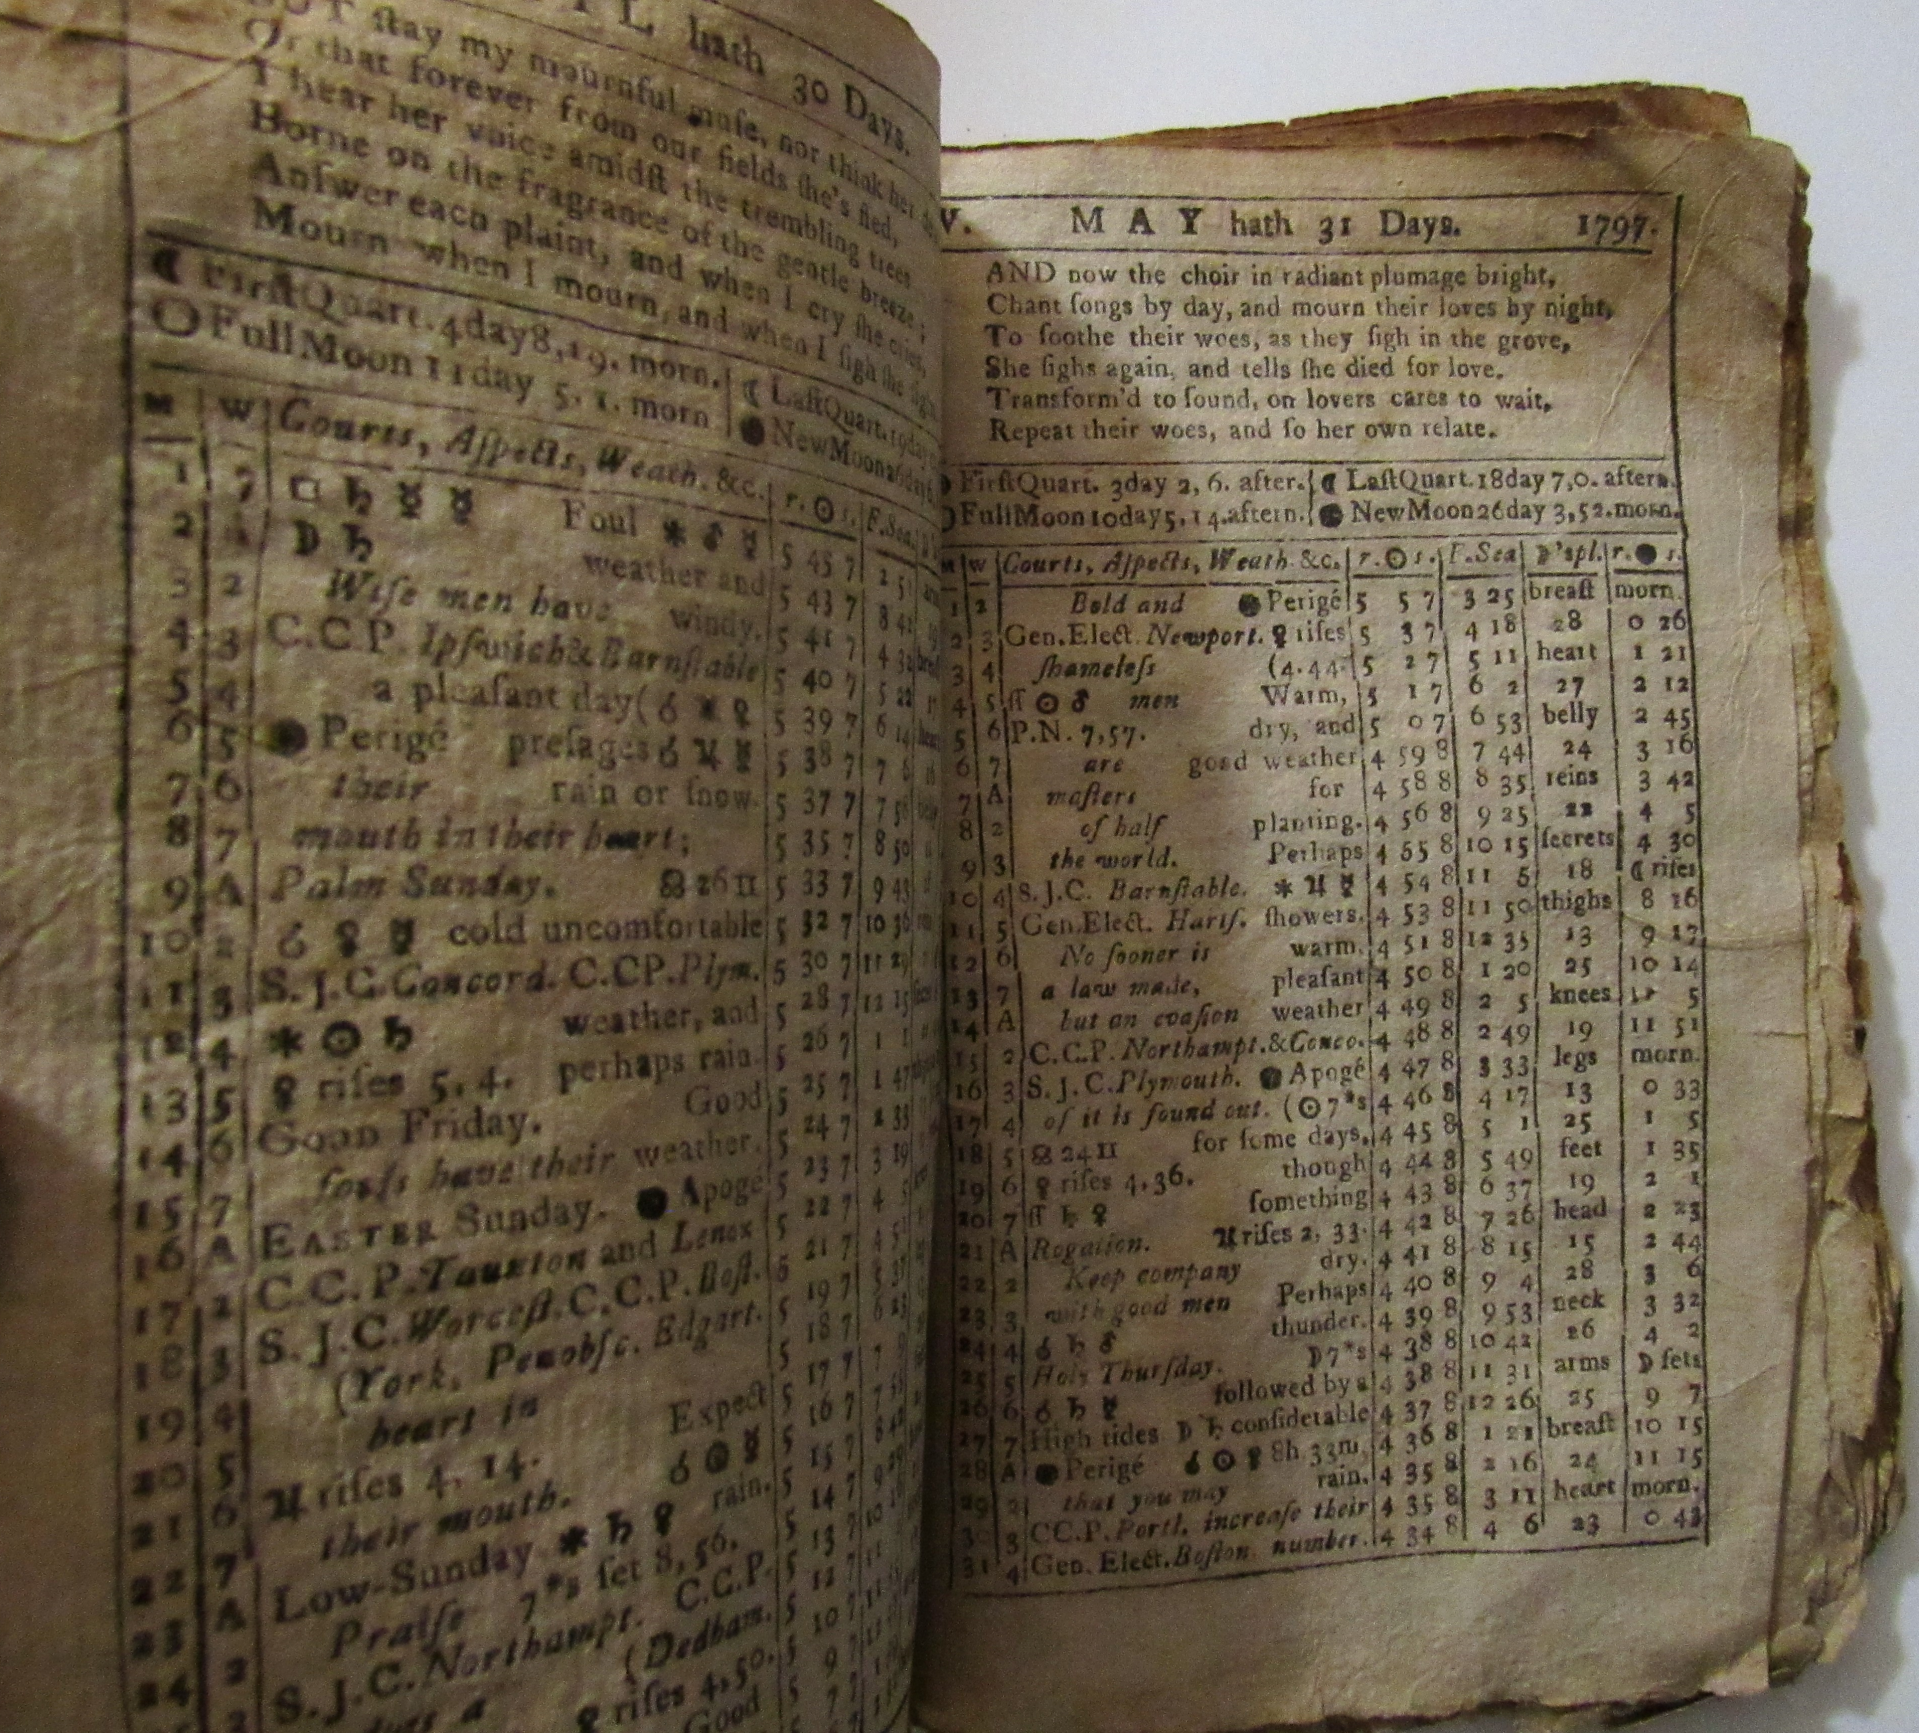 hath 30 Days.
ſtay my mournful muſe, nor think her
Or that forever from our fields ſhe's fled,
I hear her voice amidſt the trembling trees
Borne on the fragrance of the gentle breeze;
Anſwer each plaint, and when I cry ſhe cries,
Mourn when I mourn, and when I ſigh ſhe ſighs
☾ FirſtQuart. 4day 8,19. morn. ☾ LaſtQuart. 19day
○ FullMoon 11day 5. 1. morn ● NewMoon 26day
M W Courts, Aſpects, Weath. &c. r. ☉ s. F.Sea.
1 7 □ ♄ ☿ ☿ Foul ⚹ ♂ ☿ 5 45 7 2 51
2 ☽ ♄ weather and 5 43 7 8 41
3 2 Wiſe men have windy. 5 41 7 4 32
4 3 C.C.P. Ipſwich & Barnſtable 5 40 7 5 22
5 4 a pleaſant day( ☌ ⚹ ♀ 5 39 7 6 14
6 5 ● Perigé preſages ☌ ♃ ☿ 5 38 7 7 6
7 6 their rain or ſnow. 5 37 7 7 56
8 7 mouth in their heart; 5 35 7 8 50
9 A Palm Sunday. ☊ 26 ♊ 5 33 7 9 43
10 2 ☌ ♀ ☿ cold uncomfortable 5 32 7 10 36
11 3 S.J.C. Concord. C.CP. Plym. 5 30 7 11 29
12 4 ⚹ ☉ ♄ weather, and 5 28 7 12 15
13 5 ♀ riſes 5, 4. perhaps rain. 5 26 7 1 1
14 6 Good Friday. Good 5 25 7 1 47
15 7 fools have their weather. 5 24 7 2 33
16 A EASTER Sunday. ● Apogé 5 23 7 3 19
17 2 C.C.P. Taunton and Lenox 5 22 7 4 5
18 3 S.J.C. Worceſt. C.C.P. Boſt. 5 21 7
19 4 (York, Penobſc. Edgart. 5 19 7 5 37
20 5 heart in 5 18 7 6 23
21 6 ♃ riſes 4, 14. Expect 5 17 7
22 7 their mouth. ☌ ☉ ☿ 5 16 7
23 A Low-Sunday ⚹ ♄ ♀ rain. 5 15 7
24 2 Praiſe 7*s ſet 8, 56. 5 14 7
S.J.C. Northampt. C.C.P. 5 13 7
(Dedham. 5 12 7
♀ riſes 4, 50. 5 10 7
Good 5 9 7
V. MAY hath 31 Days. 1797.
AND now the choir in radiant plumage bright,
Chant ſongs by day, and mourn their loves by night,
To ſoothe their woes, as they ſigh in the grove,
She ſighs again, and tells ſhe died for love.
Transform'd to ſound, on lovers cares to wait,
Repeat their woes, and ſo her own relate.
FirſtQuart. 3day 2, 6. after. ☾ LaſtQuart. 18day 7,0. aftern.
FullMoon 10day 5, 14. aftern. ● NewMoon 26day 3,52. morn.
M W Courts, Aſpects, Weath &c. r. ☉ s. F.Sea ☽'spl. r. ● s.
1 2 Bold and ● Perigé 5 5 7 3 25 breaſt morn.
2 3 Gen.Elect. Newport. ♀ riſes 5 3 7 4 18 28 0 26
3 4 ſhameleſs (4.44. 5 2 7 5 11 heart 1 21
4 5 ſſ ☉ ♂ men Warm, 5 1 7 6 2 27 2 12
5 6 P.N. 7,57. dry, and 5 0 7 6 53 belly 2 45
6 7 are good weather 4 59 8 7 44 24 3 16
7 A maſters for 4 58 8 8 35 reins 3 42
8 2 of half planting. 4 56 8 9 25 22 4 5
9 3 the world. Perhaps 4 55 8 10 15 ſecrets 4 30
10 4 S.J.C. Barnſtable. ⚹ ♃ ☿ 4 54 8 11 6 18 ☾ riſes
11 5 Gen.Elect. Hartf. ſhowers. 4 53 8 11 50 thighs 8 16
12 6 No ſooner is warm. 4 51 8 12 35 13 9 17
13 7 a law made, pleaſant 4 50 8 1 20 25 10 14
14 A but an evaſion weather 4 49 8 2 5 knees 11 5
15 2 C.C.P. Northampt. & Conco. 4 48 8 2 49 19 11 51
16 3 S.J.C. Plymouth. ● Apogé 4 47 8 3 33 legs morn.
17 4 of it is found out. (☉ 7*s 4 46 8 4 17 13 0 33
18 5 ☊ 24 ♊ for ſome days, 4 45 8 5 1 25 1 5
19 6 ♀ riſes 4, 36. though 4 44 8 5 49 feet 1 35
20 7 ſſ ♄ ♀ ſomething 4 43 8 6 37 19 2 1
21 A Rogation. ♃ riſes 2, 33. 4 42 8 7 26 head 2 23
22 2 Keep company dry. 4 41 8 8 15 15 2 44
23 3 with good men Perhaps 4 40 8 9 4 28 3 6
24 4 ☌ ♄ ♂ thunder. 4 39 8 9 53 neck 3 32
25 5 Holy Thurſday. ☽ 7*s 4 38 8 10 42 26 4 2
26 6 ☌ ♄ ☿ followed by a 4 38 8 11 31 arms ☽ ſets
27 7 High tides ☽ ♄ conſiderable 4 37 8 12 26 25 9 7
28 A ● Perigé ☌ ☉ ♀ 8h. 33m. 4 36 8 1 21 breaſt 10 15
29 2 that you may rain. 4 35 8 2 16 24 11 15
30 3 CC.P. Portl. increaſe their 4 35 8 3 11 heart morn.
31 4 Gen. Elect. Boſton number. 4 34 8 4 6 23 0 43